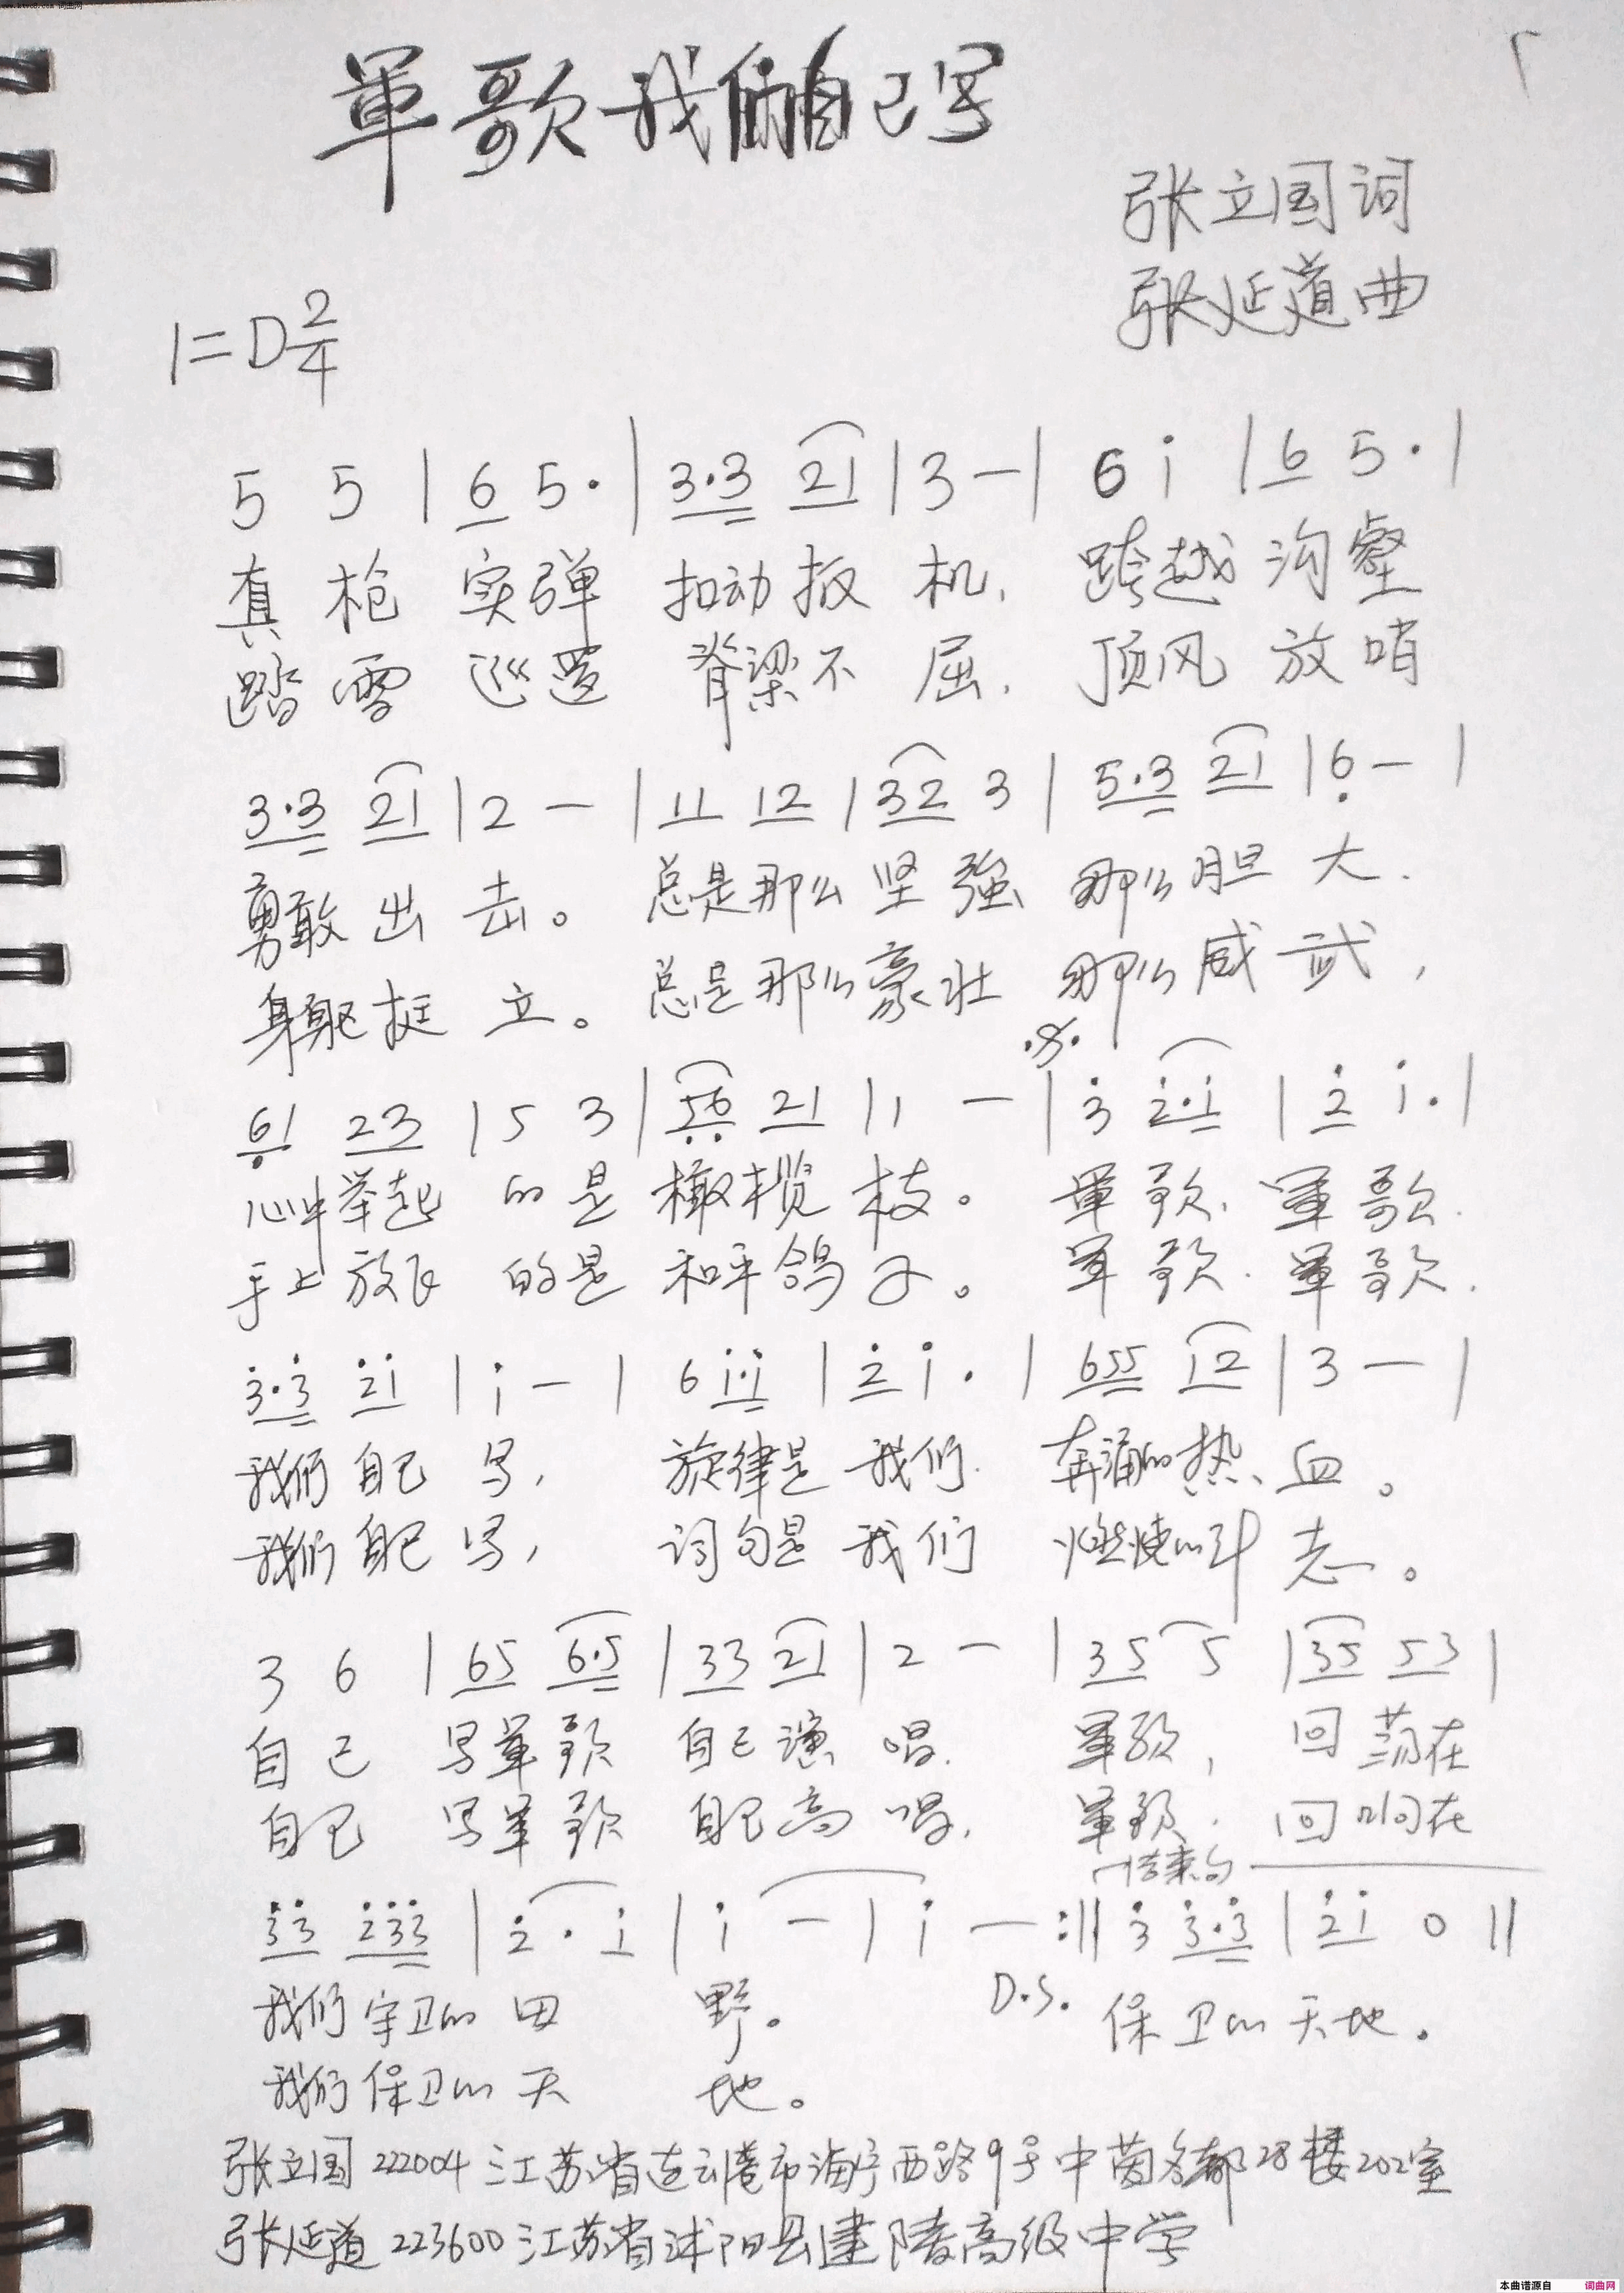 軍歌我们自己写
张立国词
张延道曲
1=D 2/4
5 5 | 6 5· | 3·3 21 | 3 — | 6 i | 6 5· |
真枪实弹 扣动扳机, 跨越沟壑
踏雪巡逻 脊梁不屈, 顶风放哨
3·3 21 | 2 — | 11 12 | 32 3 | 5·3 21 | 6 — |
勇敢出击。 总是那么坚强 那么胆大,
身躯挺立。 总是那么豪壮 那么威武,
61 23 | 5 3 | 56 21 | 1 — | 3 2·i | 2 i· |
心中举起 的是橄榄枝。 军歌, 军歌,
手上放飞 的是和平鸽子。 军歌, 军歌,
3·3 2i | i — | 6 i·i | 2 i· | 655 12 | 3 — |
我们自己写, 旋律是我们 奔涌的热血。
我们自己写, 词句是我们 燃烧的斗志。
3 6 | 65 6·5 | 33 21 | 2 — | 35 5 | 35 53 |
自己 写军歌 自己演唱, 军歌, 回荡在
自己 写军歌 自己高唱, 军歌, 回响在
结束句
33 233 | 2·i | i — | i — :|| 3 3·3 | 2i 0 ||
我们守卫的田野。 D.S. 保卫的天地。
我们保卫的天地。
张立国 222004 江苏省连云港市海宁西路9号中茵名都28楼202室
张延道 223600 江苏省沭阳县建陵高级中学
本曲谱源自 词曲网